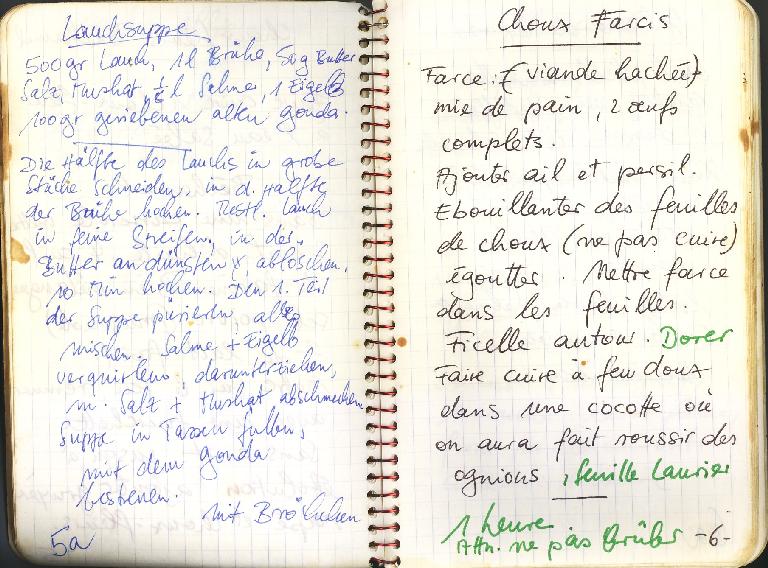 Lauchsuppe
500gr Lauch, 1l Brühe, 50g Butter
Salz, Muskat, ½ l Sahne, 1 Eigelb
100gr geriebenen alten Gouda.
Die Hälfte des Lauchs in grobe
Stücke schneiden, in d. Hälfte
der Brühe kochen. Restl. Lauch
in feine Streifen, in der
Butter andünsten u. ablöschen.
10 Min kochen. Den 1. Teil
der Suppe pürieren alles
mischen. Sahne + Eigelb
verquirlen, darunterziehen,
m. Salz + Muskat abschmecken
Suppe in Tassen füllen,
mit dem Gouda
bestreuen.
mit Brötchen
5a
Choux Farcis
Farce: (viande hachée)
mie de pain, 2 œufs
complets.
Ajouter ail et persil.
Ebouillanter des feuilles
de choux (ne pas cuire)
égoutter. Mettre farce
dans les feuilles.
Ficelle autour. Dorer
Faire cuire à feu doux
dans une cocotte où
on aura fait roussir des
ognions, feuille Laurier
1 heure
Attn. ne pas Brûler -6-